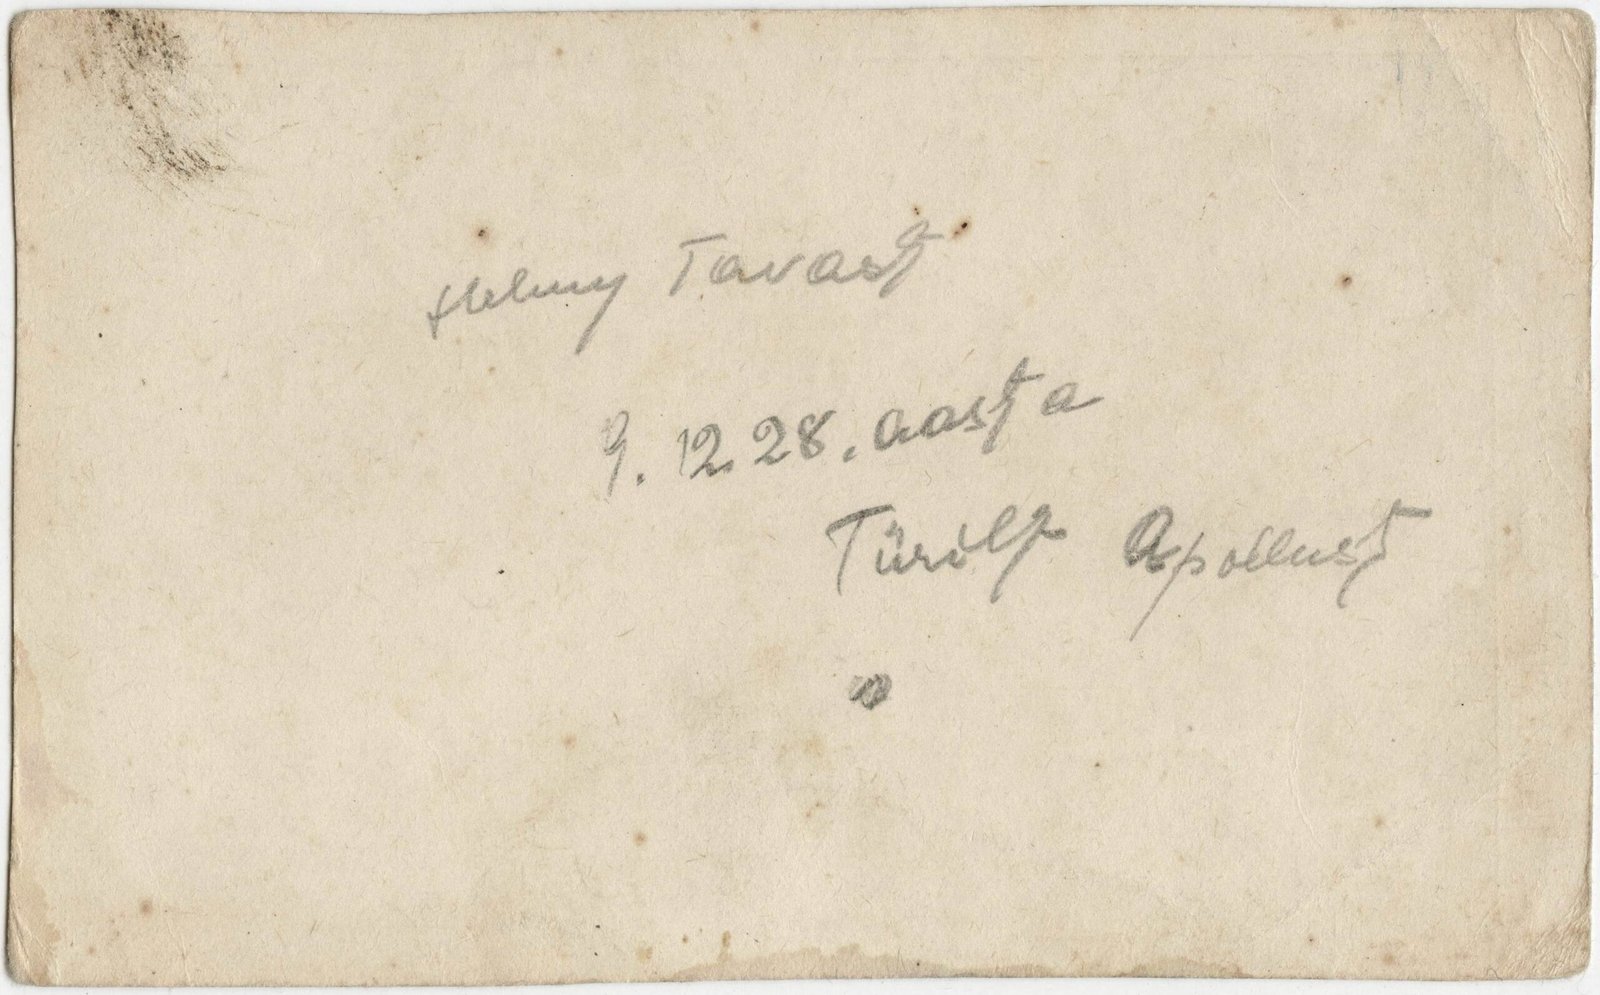 Helmy Tavast
9. 12. 28. aasta
Türilt Apollust